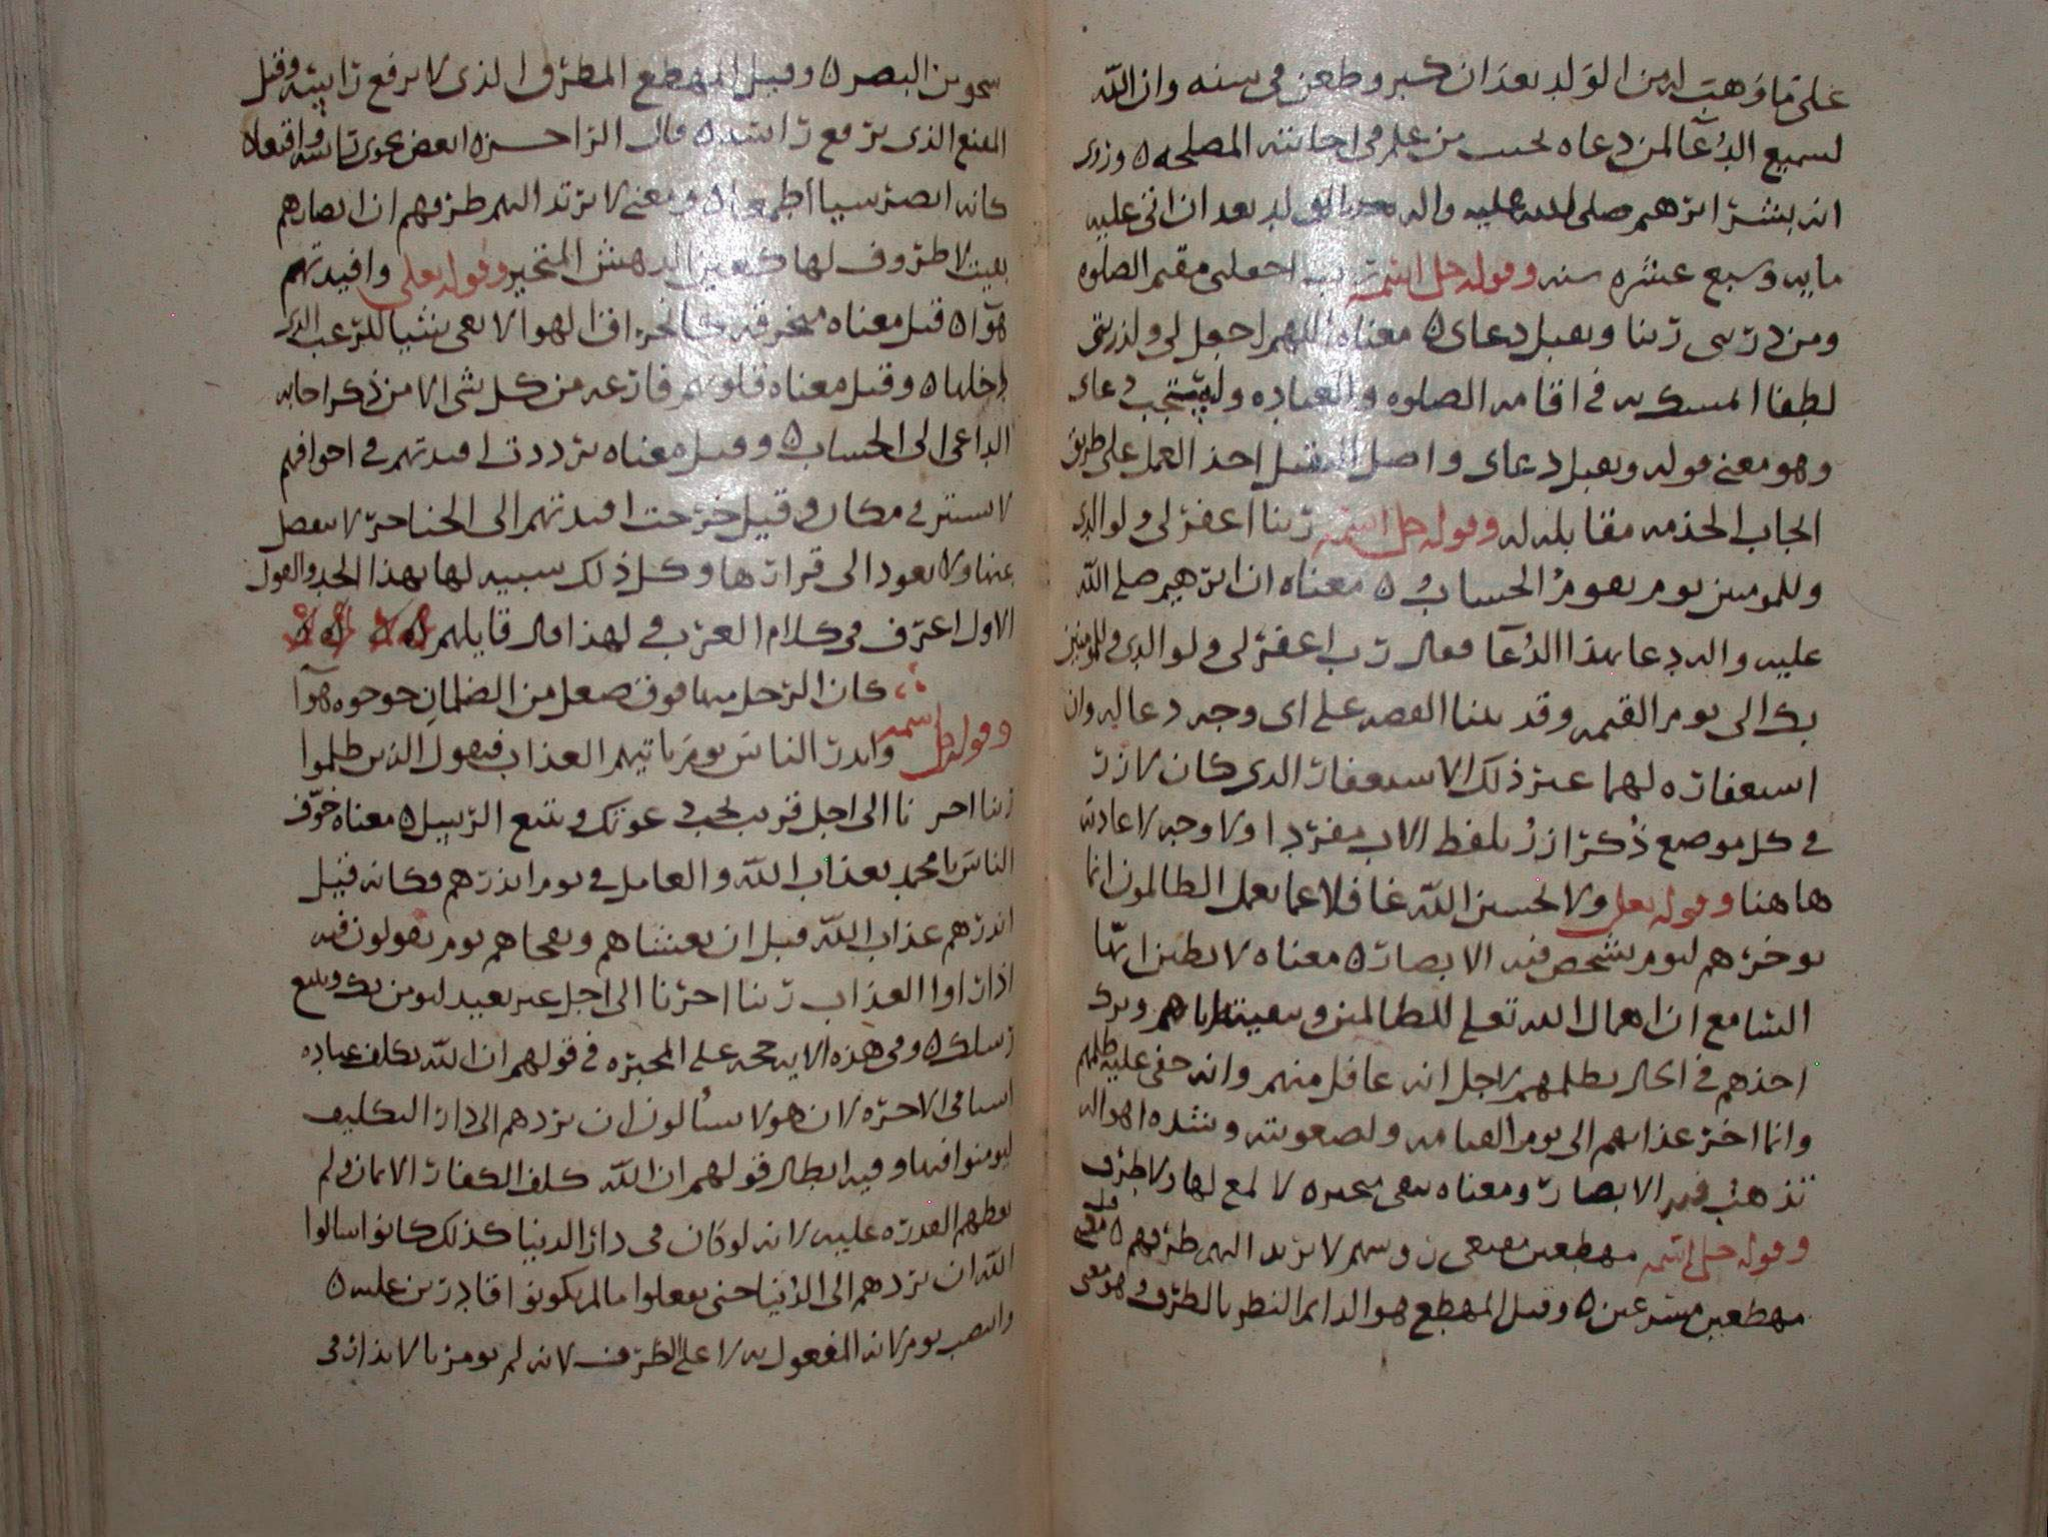 على ما وهب له من الولد بعد ان كبر وطعن في سنه وان الله
لسميع الدُعآ لمن دعاه بحسب من علم في اجابته المصلحه ه وروى
انه بشر ابرهيم صلى الله عليه واله بالولد بعد ان اتى عليه
مايه وسبع عشره سنه وقوله جل اسمه رب اجعلني مقيم الصلوه
ومن ذريتى ربنا وتقبل دعاى ه معناه اللهم اجعل لى ولذريتى
لطفا نتمسك به في اقامه الصلوه والعباده وليستجب دعاى
وهو معنى قوله وتقبل دعاى واصل التقبل اخذ العمل على طريق
ايجاب الحذمه مقابله له وقوله جل اسمه ربنا اغفر لى ولوالدى
وللمومنين يوم يقومُ الحساب ه معناه ان ابرهيم صلى الله
عليه واله دعا بهذا الدُعآ فقال رب اغفر لى ولوالدى وللمومنين
بك الى يوم القيمه وقد بينا القصه على اى وجه دعا له وان
استغفاره لهما غير ذلك الاستغفار الذى كان لازر
في كل موضع ذُكر ازرُ بلفظ الاب مفردا ولا وجه لاعادته
هاهنا وقوله تعلى ولا تحسبن الله غافلا عما يعمل الظالمون انما
يوخرهم ليوم تشخص فيه الابصار ه معناه لا تظنن ايّها
السامع ان اهمال الله تعلى للظالمين وتبقيته اياهم وترك
اخذهم في الحال بظلمهم لاجل انه غافل منهم وانه خفى عليه ظلمهم
وانما اخر عذابهم الى يوم القيامه ولصعوبته وشده اهواله
تذهبُ فيه الابصار ومعناه تبقى متحيره لا تلمع لها ولا طرف
وقوله جل اسمه مهطعين مقنعى روسهم لا يرتد اليهم طرفهم ه قيل معنى
مهطعين مسرعين ه وقيل المهطع هو الدايم النظر بالطرف وهو معنى
شحوص البصر ه وقيل المهطع المطرق الذى لا يرفع راسه وقيل
المقنع الذى يرفع راسه ه قال الراجز ه انغض نحوى راسه واقنعا ه
كانه ابصر شيا اطمعا ه ومعنى لا يرتد اليهم طرفهم ان ابصارهم
بقيت لا طروف لها كعين الدهش المتحير وقوله تعلى وافيدتهم
هوآ ه قيل معناه منخرقه كانخراق الهوا لا تعى شيا للرعب الذى
دخلها ه وقيل معناه قلوبهم فارغه من كل شى الا من ذكر اجابه
الداعى الى الحساب ه وقيل معناه ترددت افيدتهم في اجوافهم
لا تستقر في مكان وقيل خرجت افيدتهم الى الحناجر لا تنفصل
عنها ولا تعود الى قرارها وكل ذلك تشبيه لها بهذا الحد والقول
الاول اعرف في كلام العرب في لهذا قال قايلهم
كان الرحل منها فوق صعل من الظلمان جوجوه هوآ
وقوله جل اسمه وانذر الناس يوم ياتيهم العذاب فيقول الذين ظلموا
ربنا اخرنا الى اجل قريب نجب دعوتك ونتبع الرسل ه معناه خوف
الناس يا محمد بعذاب الله والعامل في يوم انذرهم وكانه قيل
انذرهم عذاب الله قبل ان يغشاهم ويفجاهم يوم يقولون فيه
اذا راوا العذاب ربنا اخرنا الى اجل غير بعيد لنومن بك ونتبع
رسلك ه وفى هذه الايه حجه على المجبره في قولهم ان الله يكلف عباده
في الاخره لان هولا يسالون ان يردهم الى دار التكليف
ليومنوا فيها وفيه ابطال قولهم ان الله كلف الكفار الايمان ولم
يعطهم القدره عليه لانه لو كان في دار الدنيا كذلك كانوا سالوا
الله ان يردهم الى الدُنيا حتى يفعلوا ما لم يكونوا قادرين عليه ه
وانتصب يوم لانه المفعول به لا على الظرف لانه لم يومر بالانذار في